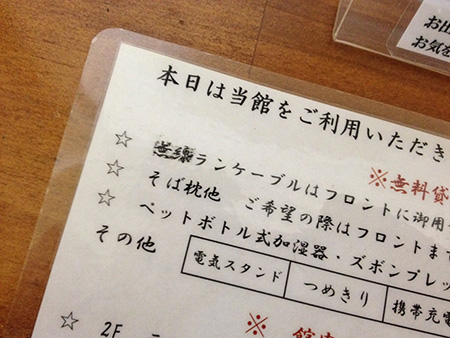 本日は当館をご利用いただき
※無料貸
☆ 無線ランケーブルはフロントに御用
☆ そば枕他 ご希望の際はフロントまで
☆ ペットボトル式加湿器・ズボンプレッ
その他
電気スタンド つめきり 携帯充電
☆ 2F
※
お出
お気を